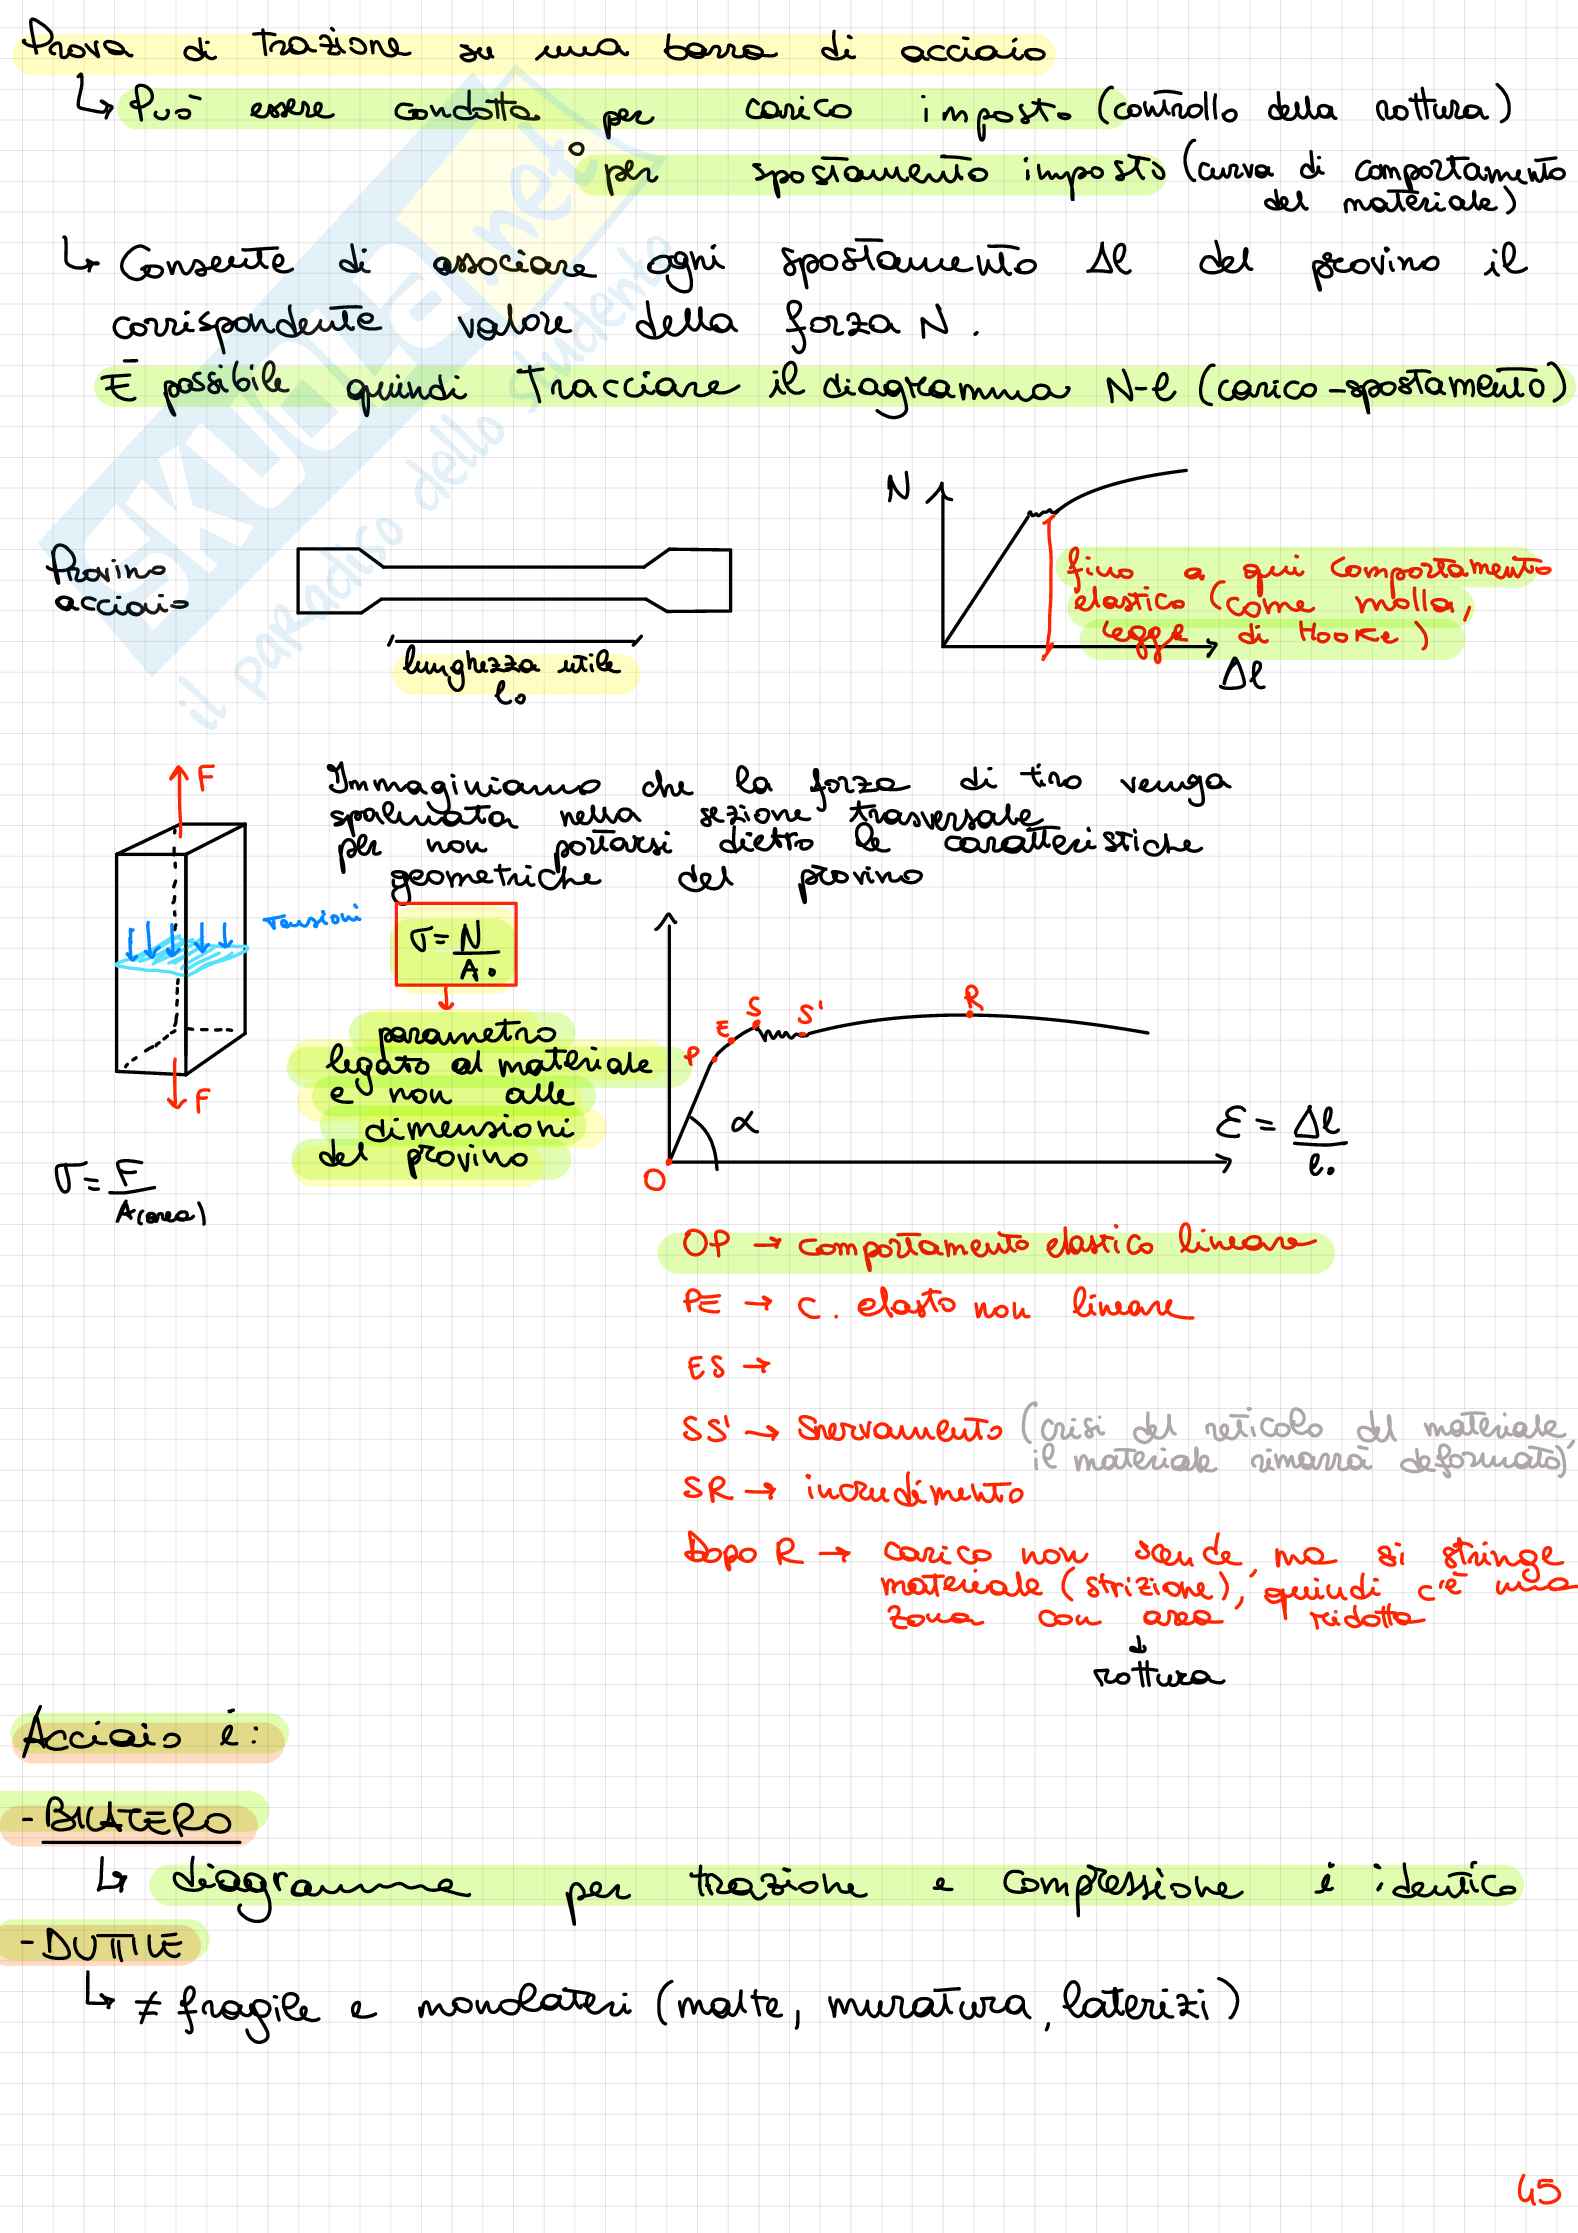 Prova di trazione su una barra di acciaio
↳ Può essere condotta per carico imposto (controllo della rottura)
o
per spostamento imposto (curva di comportamento
del materiale)
↳ Consente di associare ogni spostamento Δl del provino il
corrispondente valore della forza N.
È possibile quindi tracciare il diagramma N-l (carico-spostamento)
N
Provino
acciaio
fino a qui comportamento
elastico (come molla,
legge di Hooke)
lunghezza utile
l₀
Δl
F
Immaginiamo che la forza di tiro venga
spalmata nella sezione trasversale
per non portarsi dietro le caratteristiche
geometriche del provino
Tensioni
σ = N/A₀
parametro
legato al materiale
e non alle
dimensioni
del provino
P E S S' R
α
O
ε = Δl/l₀
F
σ = F/A(area)
OP → comportamento elastico lineare
PE → c. elasto non lineare
ES →
SS' → Snervamento (crisi del reticolo del materiale,
il materiale rimarrà deformato)
SR → incrudimento
Dopo R → carico non scende, ma si stringe
materiale (strizione), quindi c'è una
zona con area ridotta
↓
rottura
Acciaio è:
- BILATERO
↳ diagramma per trazione e compressione è identico
- DUTTILE
↳ ≠ fragile e monolateri (malte, muratura, laterizi)
45
SKUOLA.net
il paradiso dello studente